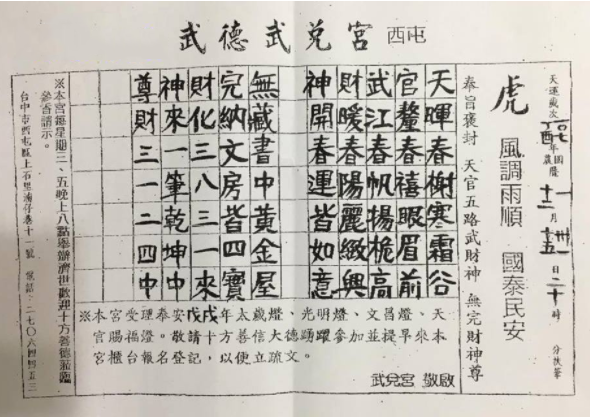 武德武兌宮 西屯
天運歲次丁酉年農曆十二月十五日二十時 分扶筆
一〇七 國曆 一 卅一
虎 風調雨順 國泰民安
奉旨褒封 天官五路武財神 無完財神尊
天暉春榭寒霜谷
官鏊春禧眼眉前
武江春帆揚桅高
財暖春陽麗緻興
神開春運皆如意
無藏書中黃金屋
完納文房皆四寶
財化三八三一來
神來一筆乾坤中
尊財三一二四中
※本宮受理奉安戊戌年太歲燈、光明燈、文昌燈、天
官賜福燈。敬請十方善信大德踴躍參加並提早來本
宮櫃台報名登記，以便立疏文。
武兌宮 敬啟
※本宮每星期二、五晚上八點舉辦濟世歡迎十方善德蒞臨
參香請示。
台中市西屯區上石里湳仔巷十一號 電話：二七〇六四四五三